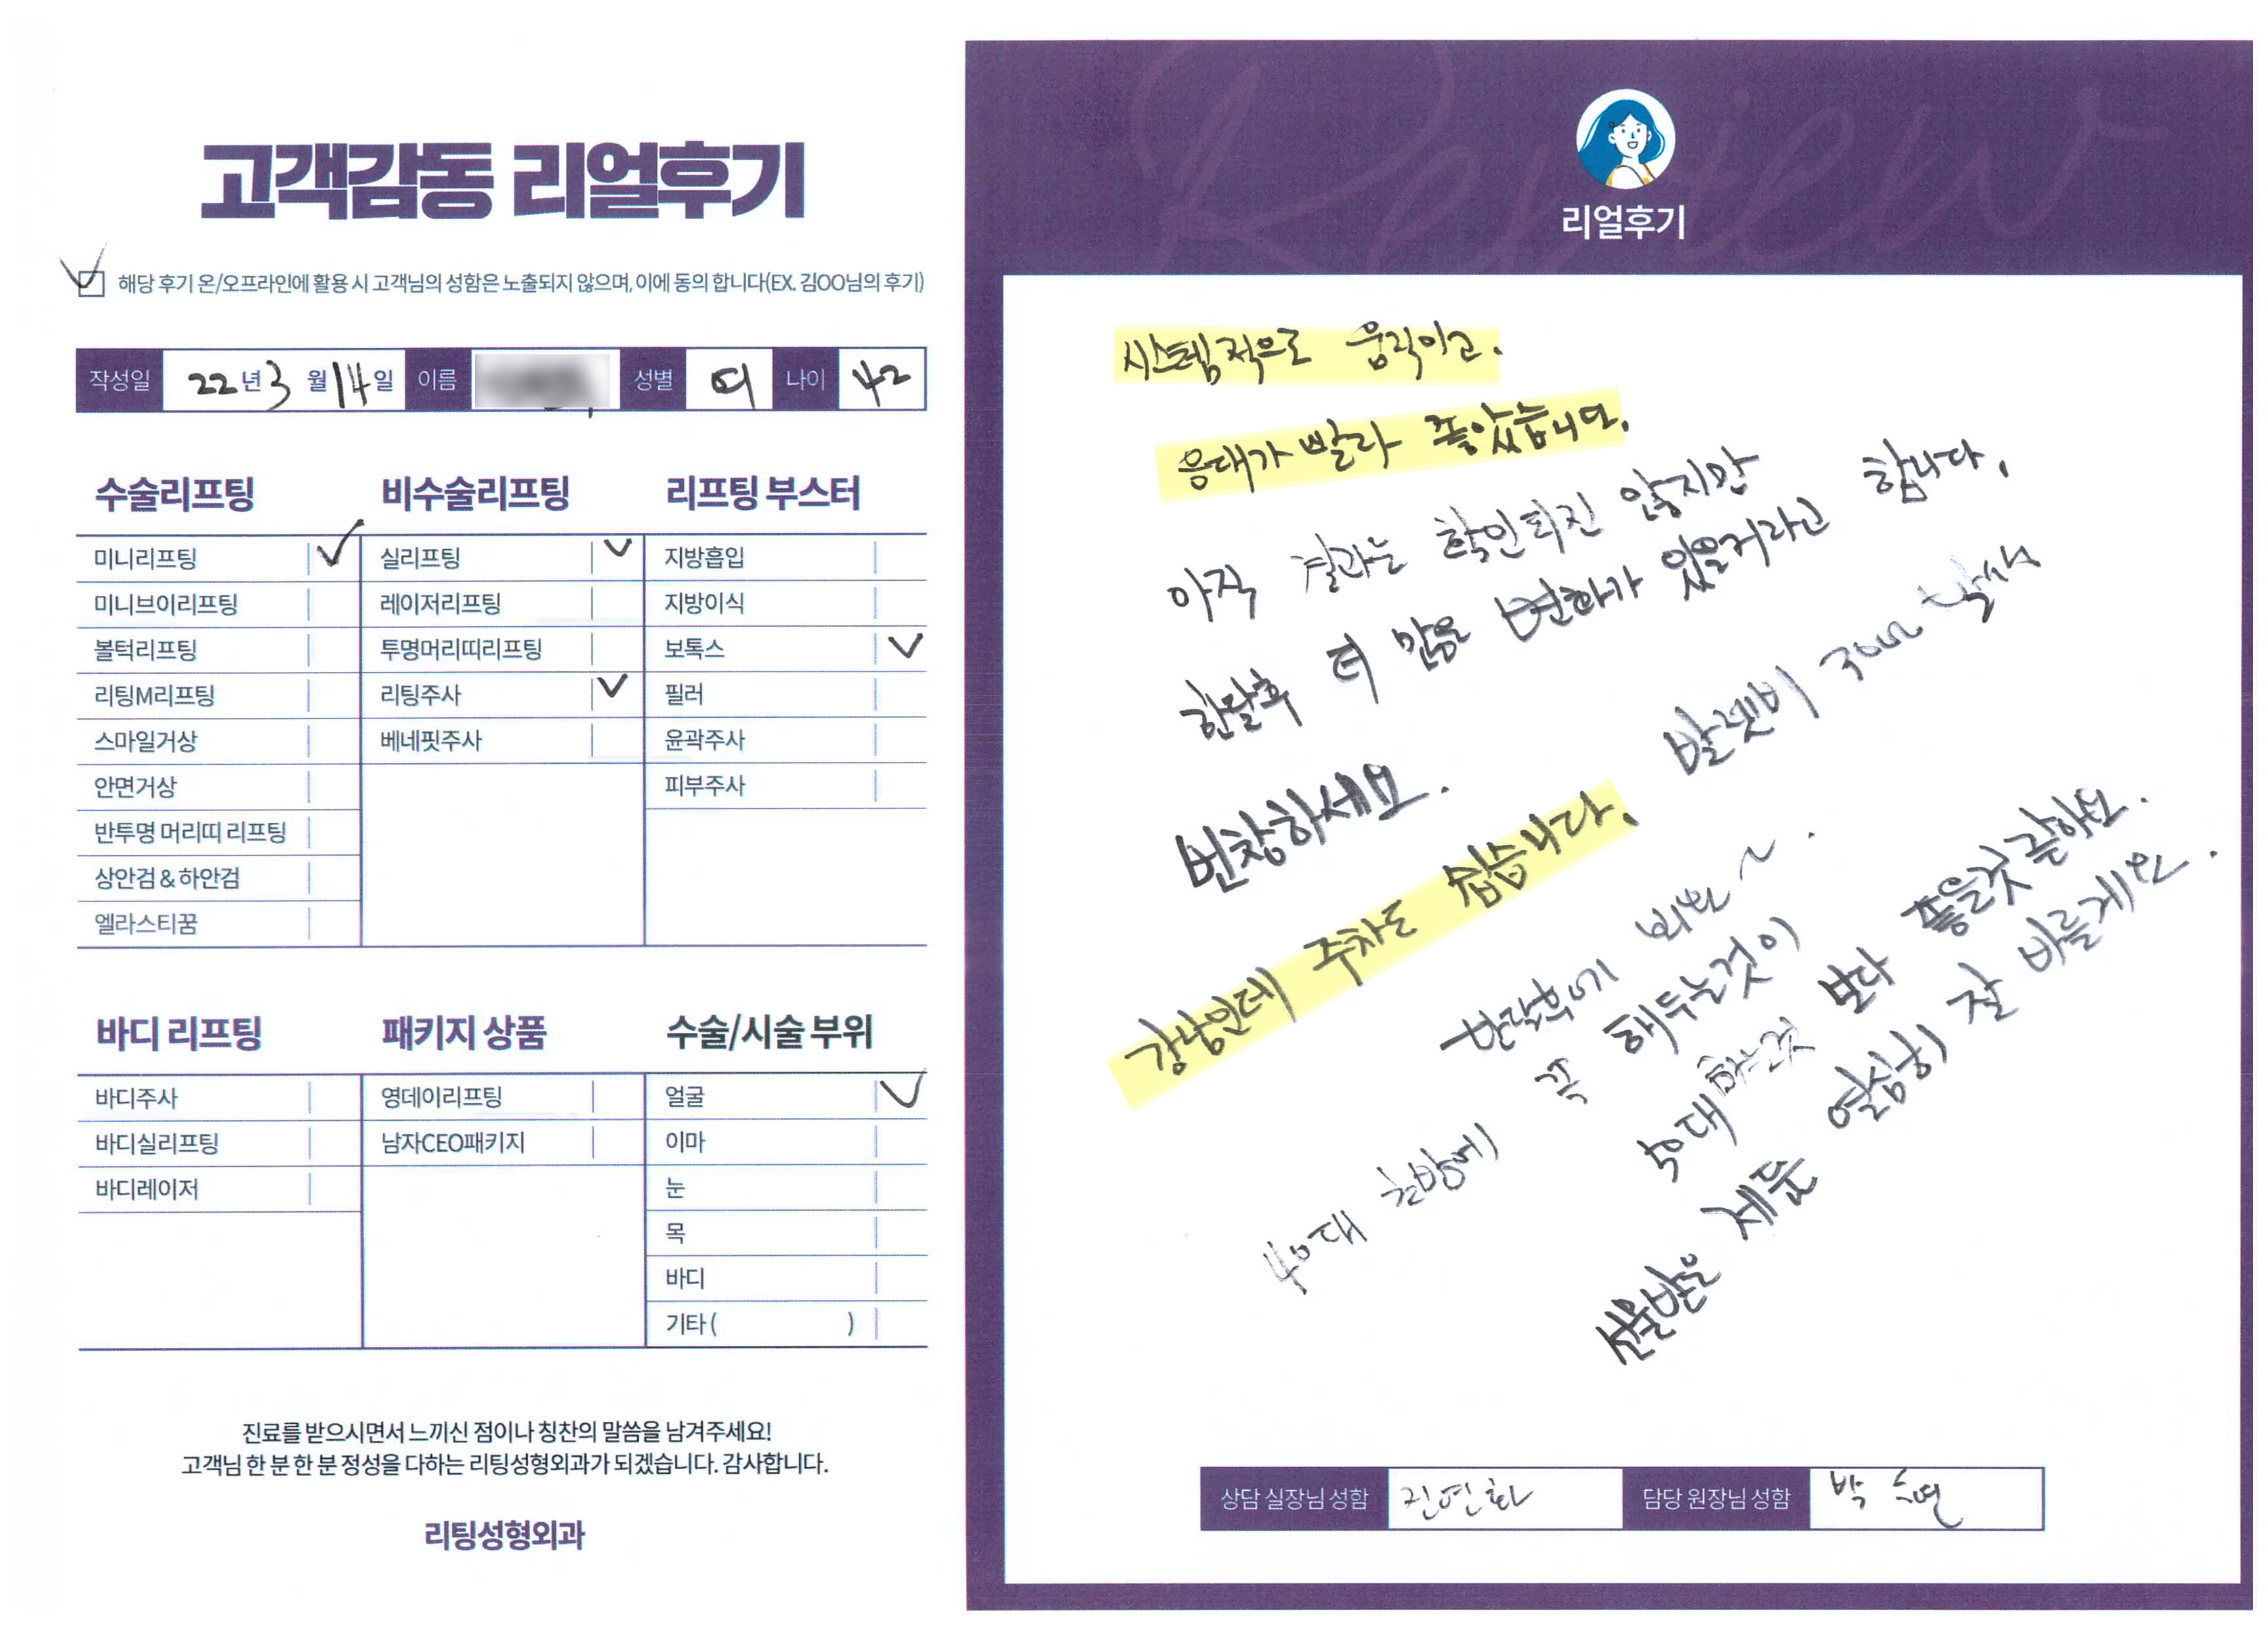 고객감동 리얼후기
해당 후기 온/오프라인에 활용 시 고객님의 성함은 노출되지 않으며, 이에 동의 합니다(EX. 김OO님의 후기)
작성일 22년 3월 14일 이름 성별 여 나이 42
수술리프팅
미니리프팅
미니브이리프팅
볼턱리프팅
리팅M리프팅
스마일거상
안면거상
반투명 머리띠 리프팅
상안검 & 하안검
엘라스티꿈
비수술리프팅
실리프팅
레이저리프팅
투명머리띠리프팅
리팅주사
베네핏주사
리프팅 부스터
지방흡입
지방이식
보톡스
필러
윤곽주사
피부주사
바디 리프팅
바디주사
바디실리프팅
바디레이저
패키지 상품
영데이리프팅
남자CEO패키지
수술/시술 부위
얼굴
이마
눈
목
바디
기타 ( )
진료를 받으시면서 느끼신 점이나 칭찬의 말씀을 남겨주세요!
고객님 한 분 한 분 정성을 다하는 리팅성형외과가 되겠습니다. 감사합니다.
리팅성형외과
Review
리얼후기
시스템적으로 움직이고.
응대가 빨라 좋았습니다.
아직 결과는 확인되진 않지만
한달후 더 많은 변화가 있을거라고 합니다.
번창하세요.
강남인데 주차도 쉽습니다. 발렛비
한달후에 뵈요~.
40대 초반에 꼭 해두는것이
50대 하는것 보다 좋을것 같아요.
선물받은 제품 열심히 잘 바를게요.
상담 실장님 성함 진연화
담당 원장님 성함 박